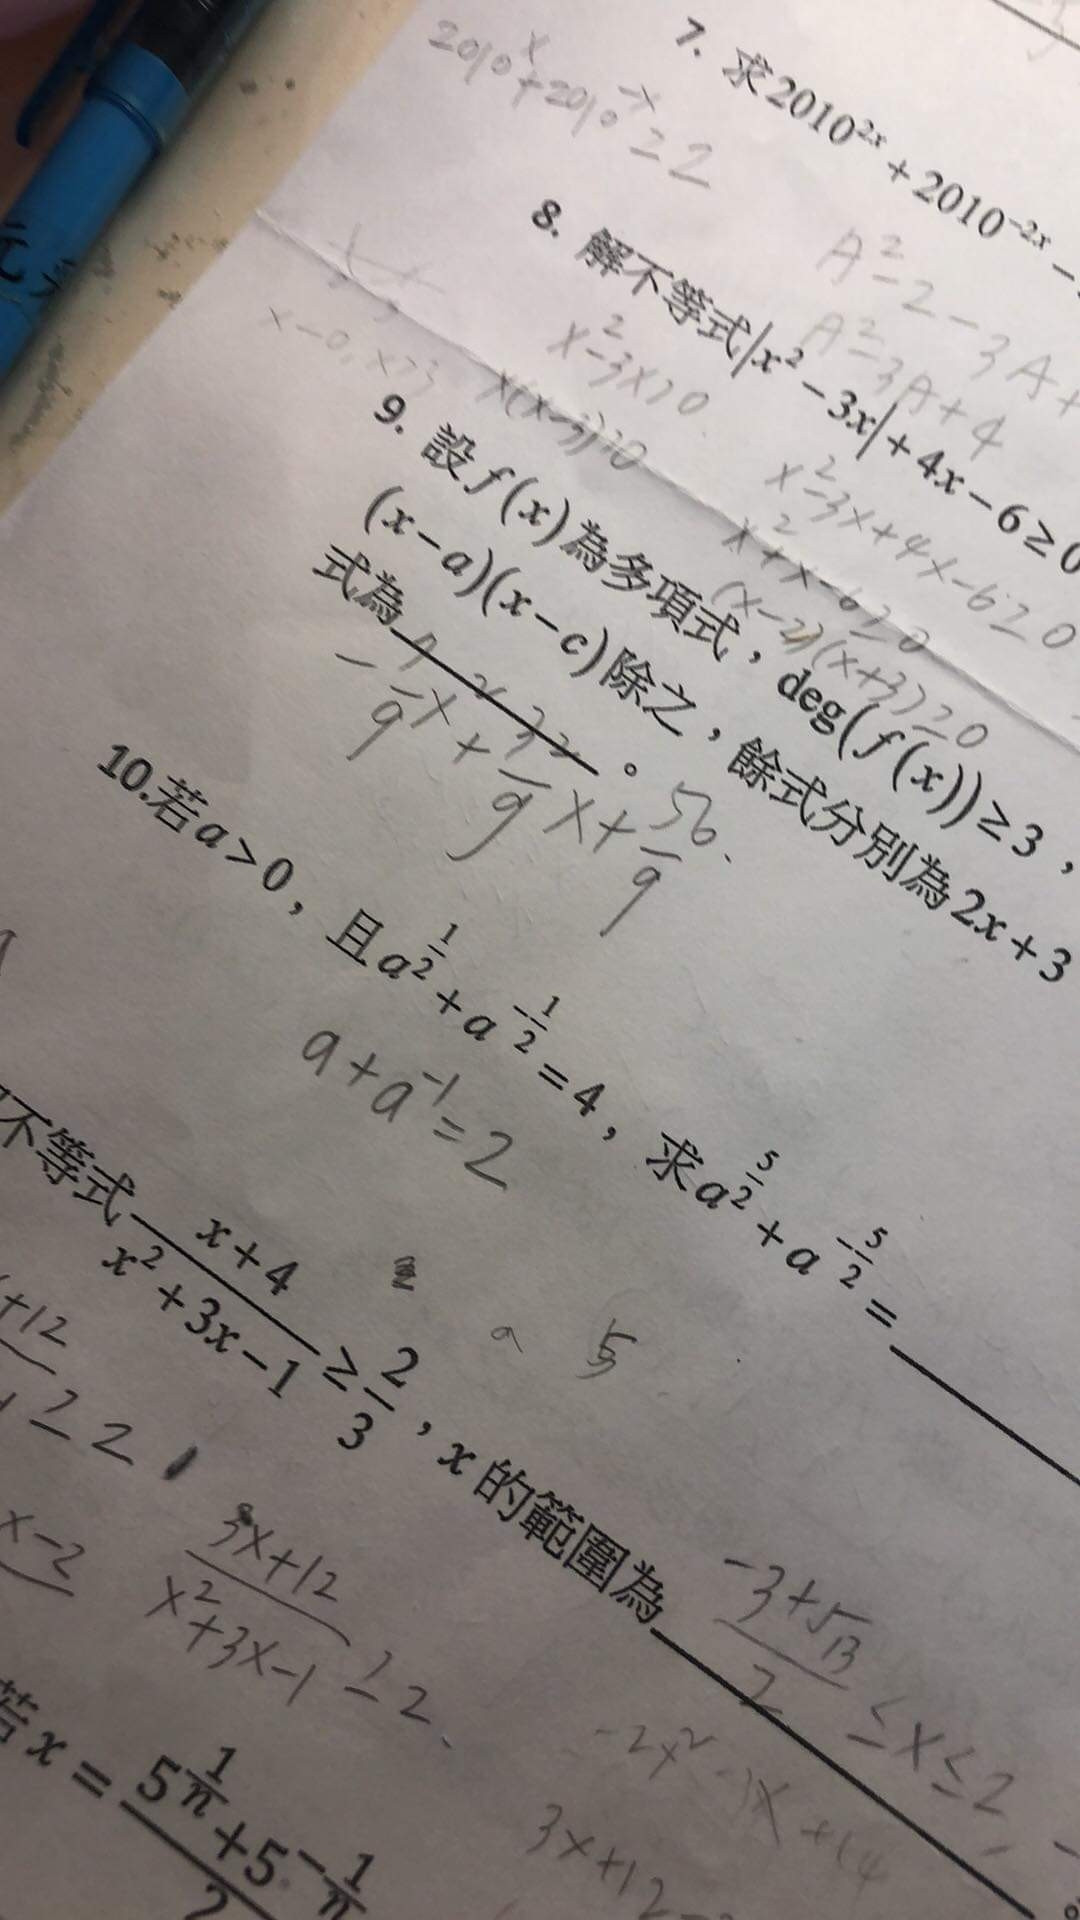 7. 求2010²ˣ + 2010⁻²ˣ −
2010ˣ + 2010⁻ˣ ≥ 2
A² − 2 − 3A +
A² − 3A + 4
8. 解不等式|x² − 3x| + 4x − 6 ≥ 0
x² − 3x ≥ 0
x(x−3) ≥ 0
x² − 3x + 4x − 6 ≥ 0
x² + x − 6 ≥ 0
(x−2)(x+3) ≥ 0
9. 設 f(x) 為多項式，deg(f(x)) ≥ 3，
(x−a)(x−c) 除之，餘式分別為 2x+3
式為
x + /9 x + 56/9
10.若 a > 0，且 a^(1/2) + a^(-1/2) = 4，求 a^(5/2) + a^(-5/2) =
a + a⁻¹ = 2
5
不等式 (x+4)/(x²+3x−1) ≥ 2/3，x 的範圍為
(-3+√13)/2 ≤ x ≤ 2
+12
≥ 2
x−2
(3x+12)/(x²+3x−1) ≥ 2
3x+12
若 x = (5^(1/n) + 5^(-1/n))/2